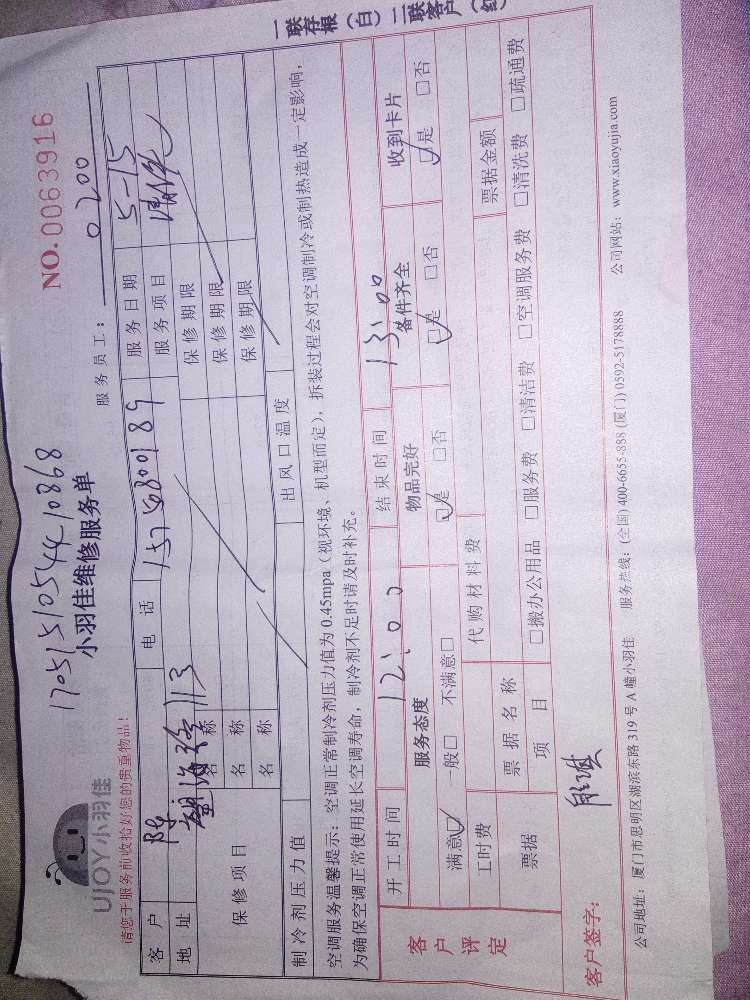 一联存根（白）二联客户（红）
1705151054410868
NO.0063916
UJOY小羽佳
小羽佳维修服务单
服务员工： 0200
请您于服务前收拾好您的贵重物品！
客户 陈 电话 15748800189 服务日期 5-15
地址 113 服务项目 清洗
保修项目 名称 保修期限
名称 保修期限
名称 保修期限
制冷剂压力值 出风口温度
空调服务温馨提示：空调正常制冷剂压力值为 0.45mpa（视环境、机型而定），拆装过程会对空调制冷或制热造成一定影响，
为确保空调正常使用延长空调寿命，制冷剂不足时请及时补充。
开工时间 12:00 结束时间 13:00
客户评定 服务态度 物品完好 备件齐全 收到卡片
满意☑ 一般□ 不满意□ ☑是 □否 ☑是 □否 ☑是 □否
工时费 代购材料费 票据金额
票据 票据名称
项目 □搬办公用品 □服务费 □清洁费 □空调服务费 □清洗费 □疏通费
客户签字：
公司地址：厦门市思明区湖滨东路 319 号 A 幢小羽佳 服务热线：(全国) 400-6655-888 (厦门) 0592-5178888 公司网站：www.xiaoyujia.com